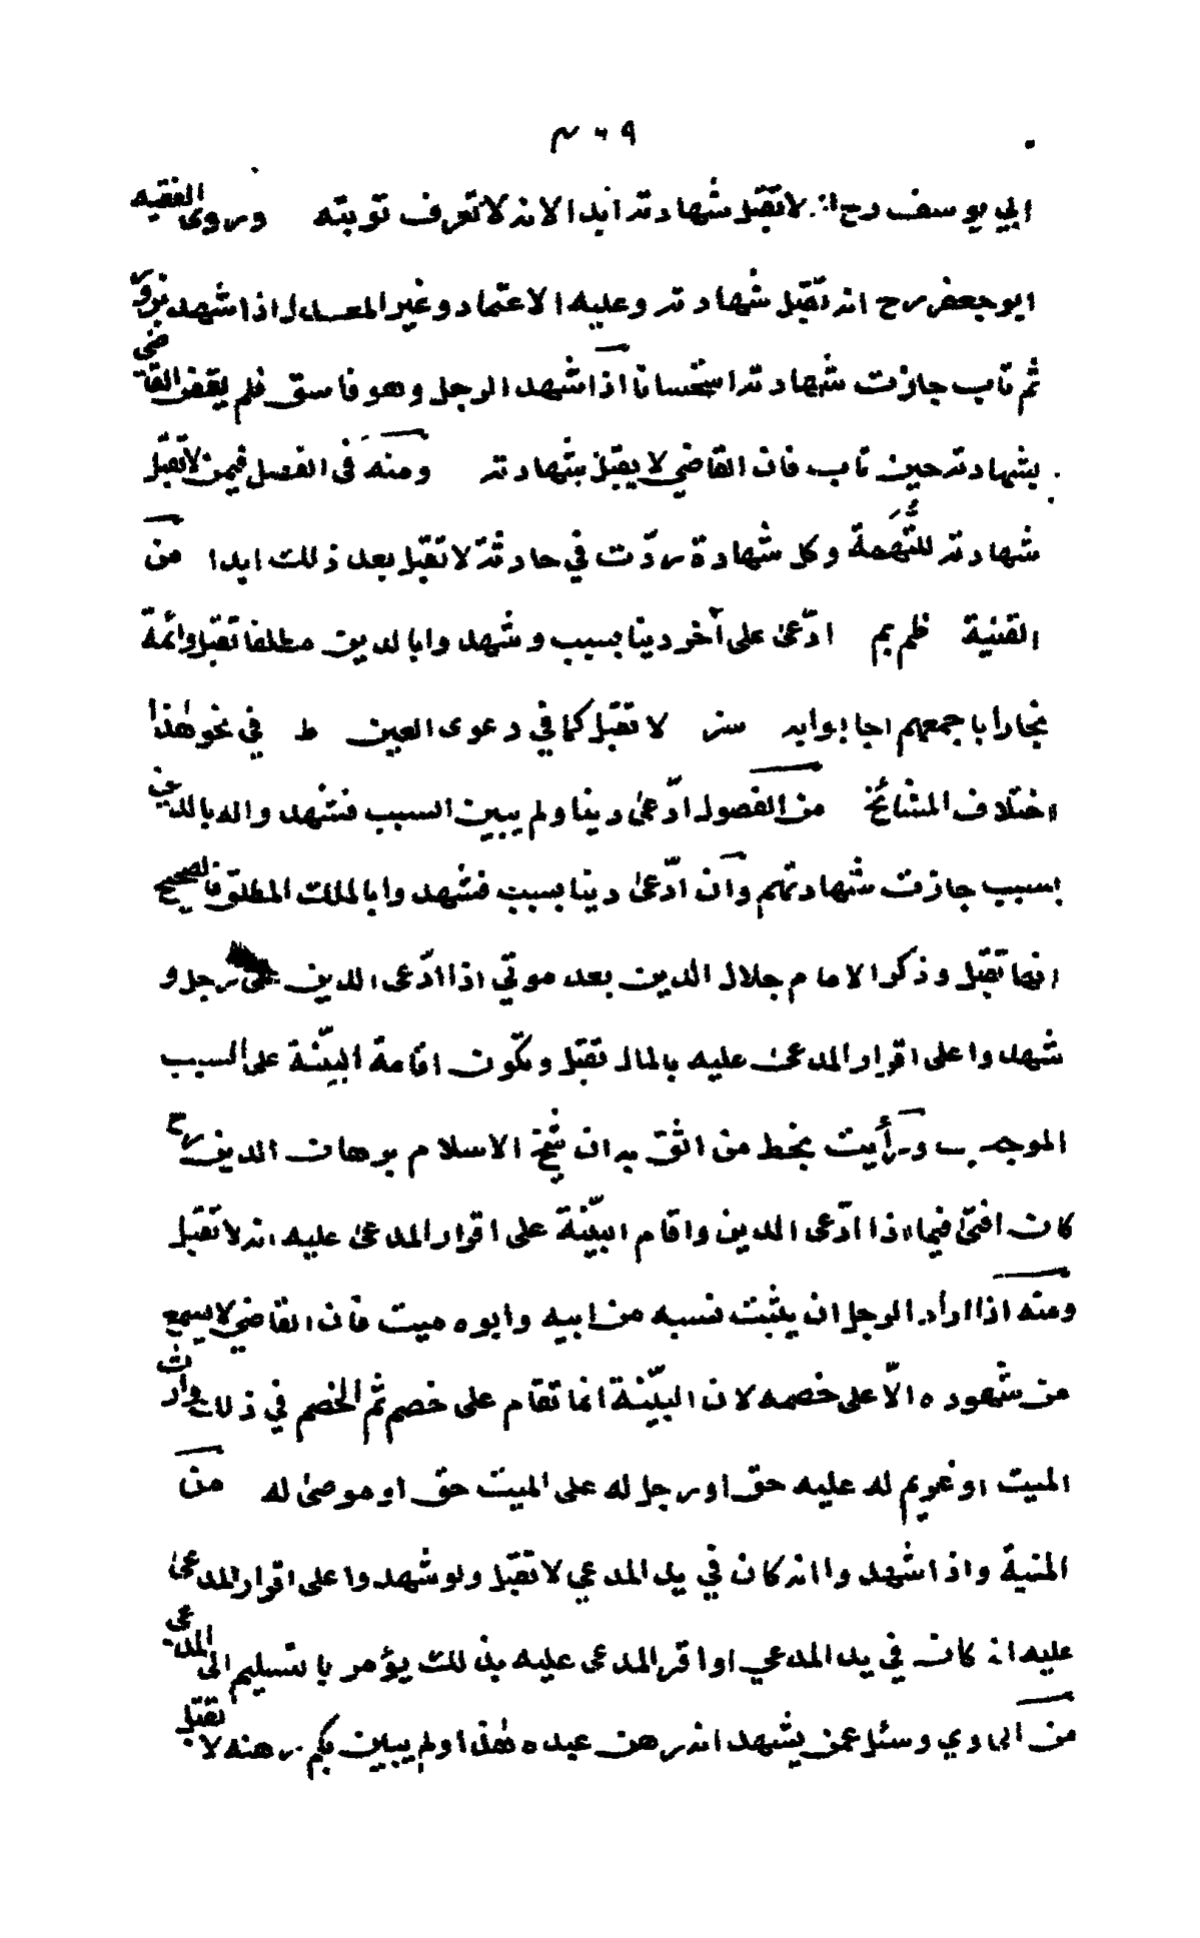 ابي يوسف رح انه لا تقبل شهادته ابدا لانه لا تعرف توبته وروى الفقيه
ابو جعفر رح انه تقبل شهادته وعليه الاعتماد وغير المعدل اذا شهد بزور
ثم تاب جازت شهادته استحسانا اذا شهد الرجل وهو فاسق فلم يقض القاضى
بشهادته حين تاب فان القاضي لا يقبل بشهادته ومنه فى الفصل فيمن لا تقبل
شهادته للتُّهَمة وكل شهادة ردّت في حادثة لا تقبل بعد ذلك ابدا من
القنية ظم بم ادّعى على آخر دينا بسبب وشهدوا بالدين مطلقا تقبل وائمة
بخارا باجمعهم اجابوا به لا تقبل كما في دعوى العين ط في نحو هذا
اختلاف المشائخ من الفصول ادّعى دينا ولم يبين السبب فشهدوا له بالدين
بسبب جازت شهادتهم وان ادّعى دينا بسبب فشهدوا بالملك المطلق فالصحيح
انها تقبل وذكر الامام جلال الدين بعد موتي اذا ادّعى الدين على رجل و
شهدوا على اقرار المدعى عليه بالمال تقبل وتكون اقامة البيّنة على السبب
الموجب ورأيت بخط من اثق به ان شيخ الاسلام برهان الدين رح
كان افتى فيما اذا ادّعى الدين واقام البيّنة على اقرار المدعى عليه انه لا تقبل
ومنه اذا اراد الرجل ان يثبت نسبه من ابيه وابوه ميت فان القاضي لا يسمع
من شهوده الّا على خصمه لان البيّنة انما تقام على خصم ثم الخصم في ذلك وارث
الميت او غريم له عليه حق او رجل له على الميت حق او موصى له من
المنية واذا شهدوا انه كان في يد المدعي لا تقبل ولو شهدوا على اقرار المدعى
عليه انه كان في يد المدعي او اقر المدعى عليه بذلك يؤمر بالتسليم الى المدعى
من وسئل عمن يشهد انه رهن عبده هذا ولم يبين بكم رهنه لا تقبل